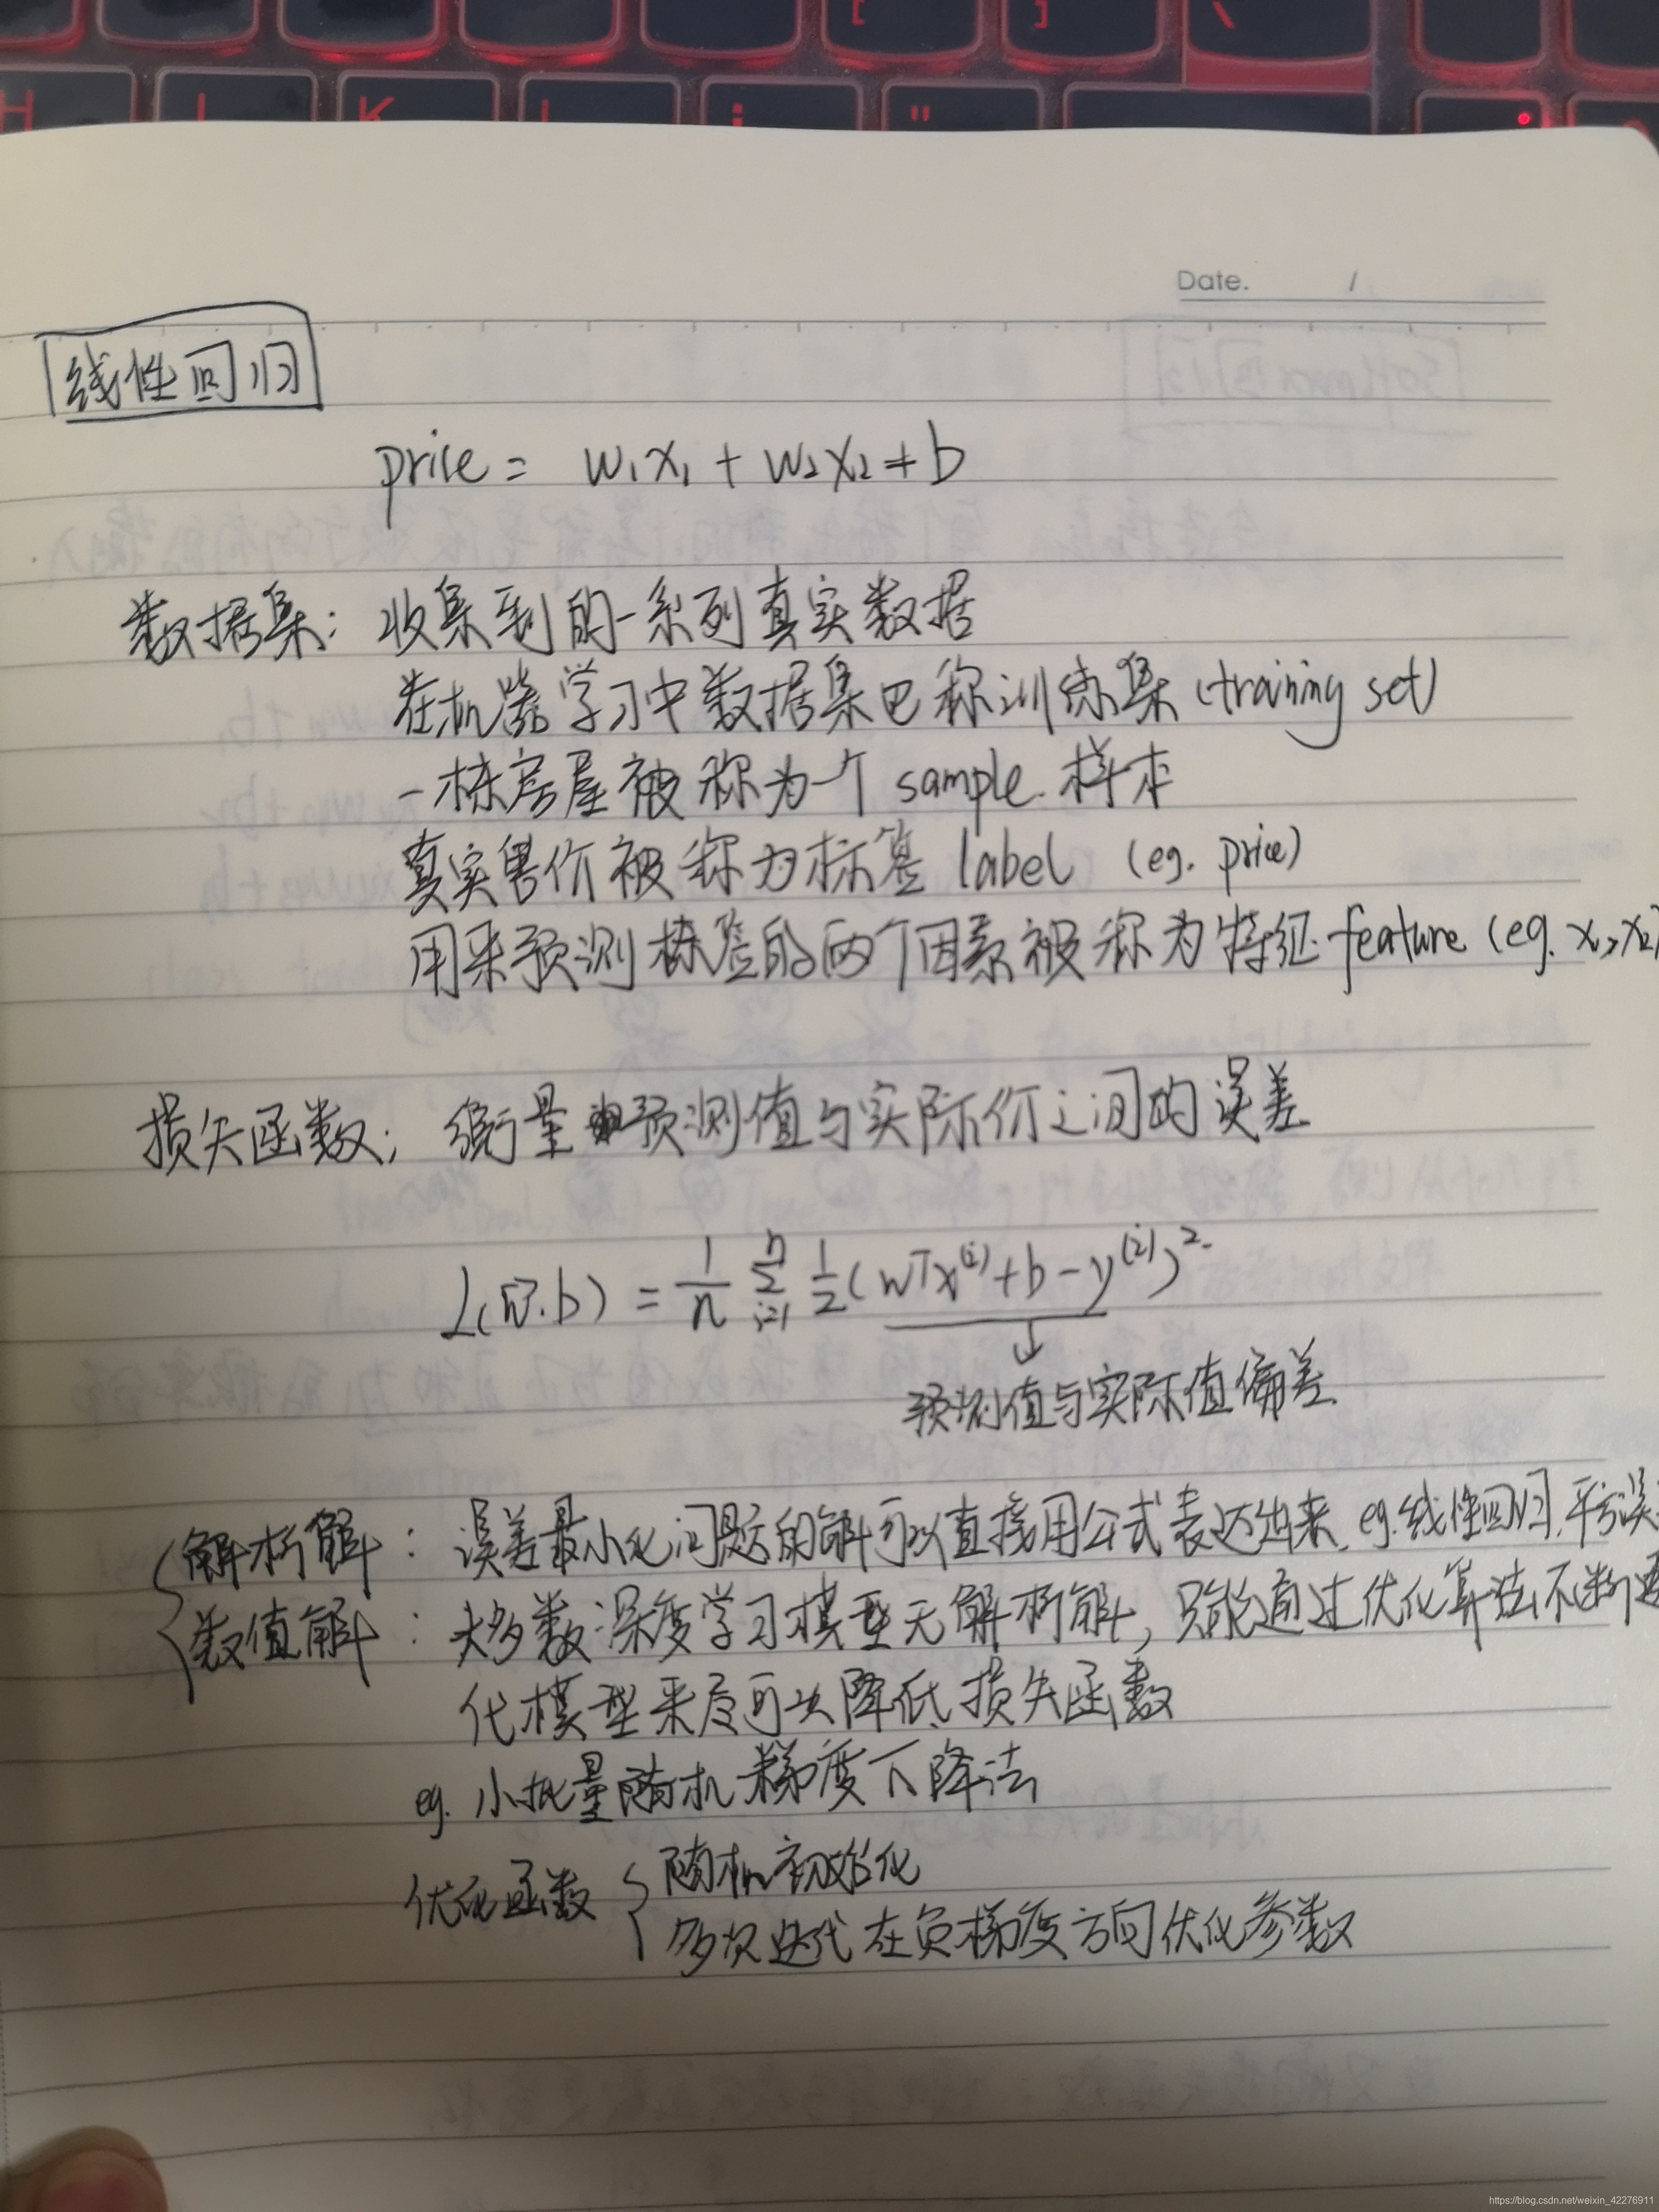 [ ] \
H J K L ; "
Date. /
线性回归
price = w₁x₁ + w₂x₂ + b
数据集: 收集到的一系列真实数据
在机器学习中数据集巴称训练集 (training set)
一栋房屋被称为一个 sample. 样本
真实售价被称为标签 label (eg. price)
用来预测标签的两个因素被称为特征 feature (eg. x₁, x₂)
损失函数: 衡量预测值与实际价之间的误差
L(w.b) = 1/n Σ i=1 n 1/2 (wᵀx⁽ⁱ⁾ + b - y⁽ⁱ⁾)²
预测值与实际值偏差
解析解: 误差最小化问题的解可以直接用公式表达出来. eg. 线性回归, 平方误
数值解: 大多数深度学习模型无解析解, 只能通过优化算法不断
化模型来尽可以降低损失函数
eg. 小批量随机梯度下降法
优化函数 { 随机初始化
多次迭代在负梯度方向优化参数
https://blog.csdn.net/weixin_42276911